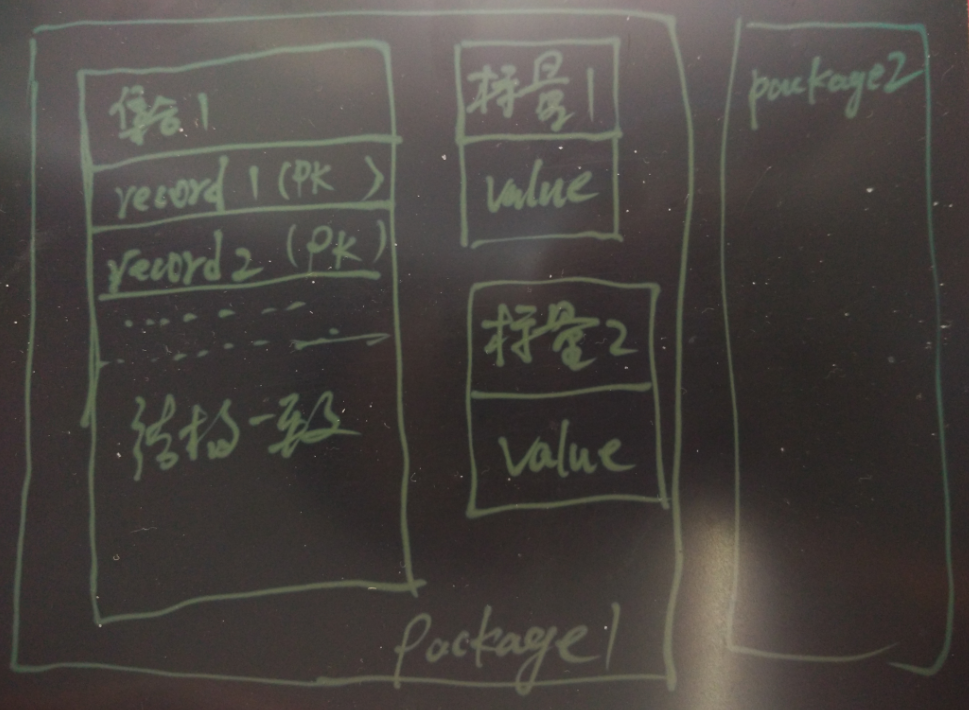 集合1
record 1 (PK )
record 2 (PK)
结构一致
标量1
value
标量2
value
package1
package2